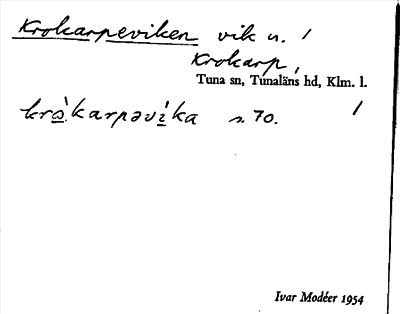 Krokarpeviken vik n. 1
Krokarp,
Tuna sn, Tunaläns hd, Klm. l.
krò̲karpəvì̲ka s. 70. 1
Ivar Modéer 1954